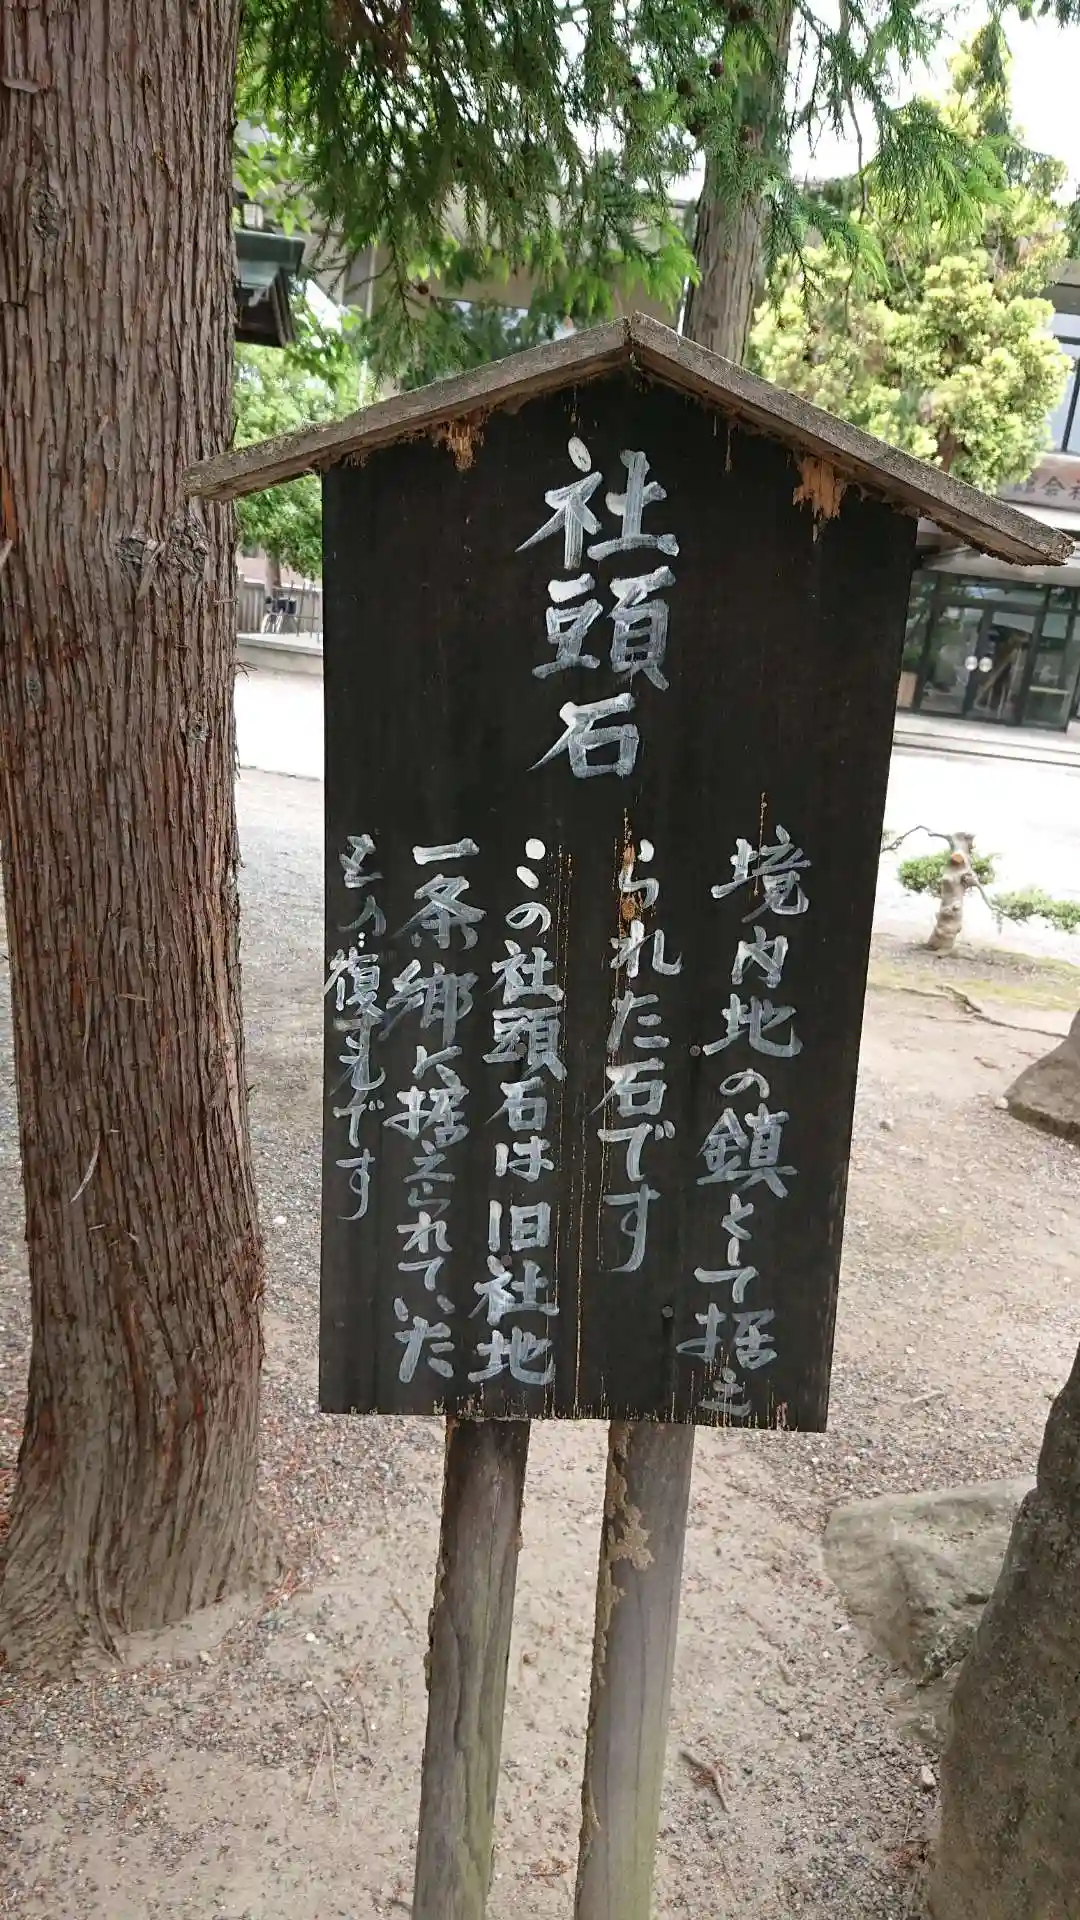 社頭石
境内地の鎮として据え
られた石です
この社頭石は旧社地
一条郷に据えられていた
ものの復元です
会社